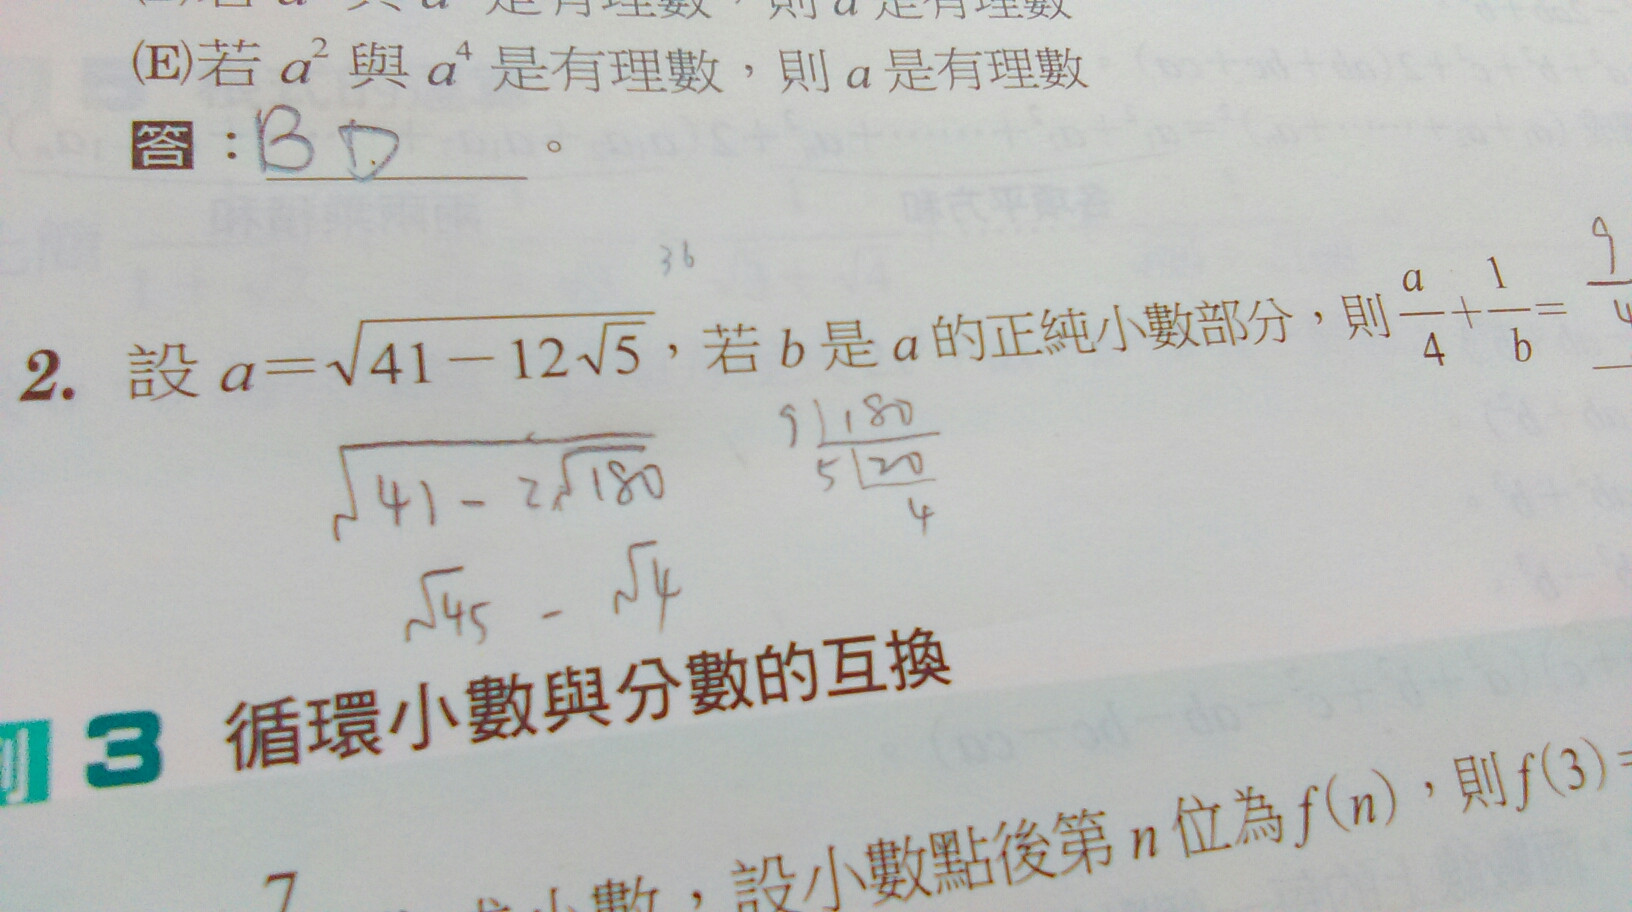 (E)若 a² 與 a⁴ 是有理數，則 a 是有理數
答：B D。
36
2. 設 a=√(41−12√5)，若 b 是 a 的正純小數部分，則 a/4 + 1/b = 9/4
√(41 - 2√180)
9 180
5 20
4
√45 - √4
例 3 循環小數與分數的互換
7
小數，設小數點後第 n 位為 f(n)，則 f(3)=